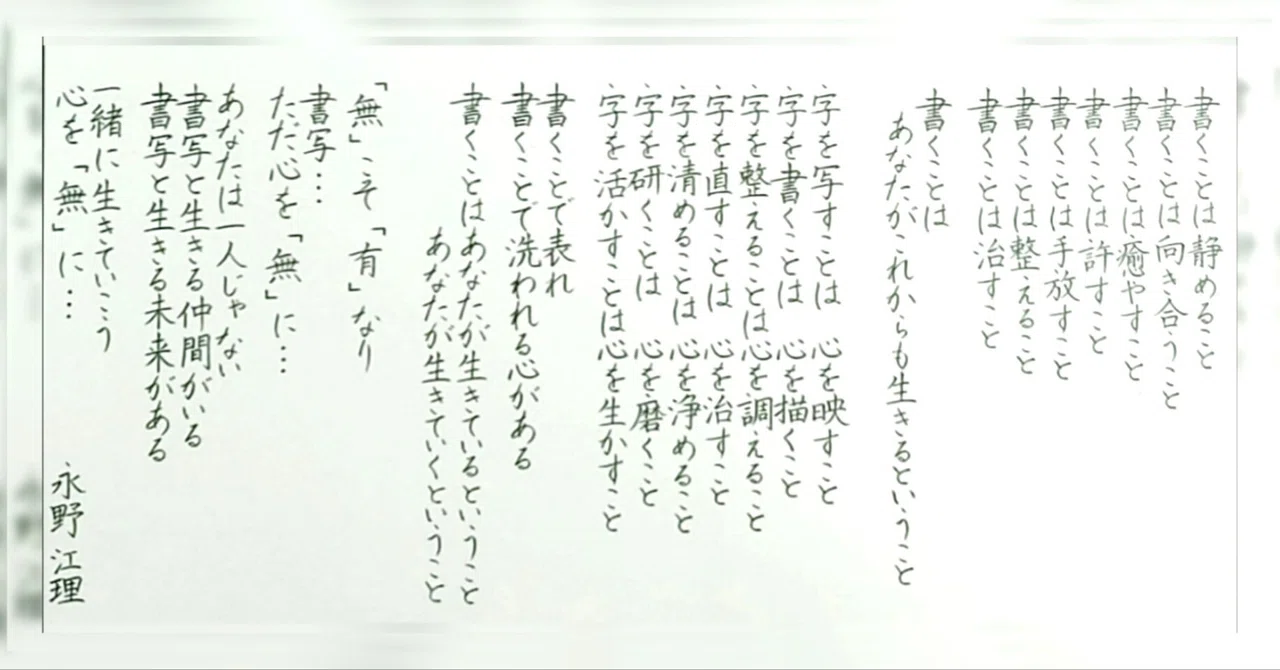 書くことは静めること
書くことは向き合うこと
書くことは癒やすこと
書くことは許すこと
書くことは手放すこと
書くことは整えること
書くことは治すこと
書くことは
あなたがこれからも生きるということ
字を写すことは 心を映すこと
字を書くことは 心を描くこと
字を整えることは心を調えること
字を直すことは 心を治すこと
字を清めることは 心を浄めること
字を研くことは 心を磨くこと
字を活かすことは心を生かすこと
書くことで表れ
書くことで洗われる心がある
書くことはあなたが生きているということ
あなたが生きていくということ
「無」こそ「有」なり
書写…
ただ心を「無」に…
あなたは一人じゃない
書写と生きる仲間がいる
書写と生きる未来がある
一緒に生きていこう
心を「無」に…
永野江理